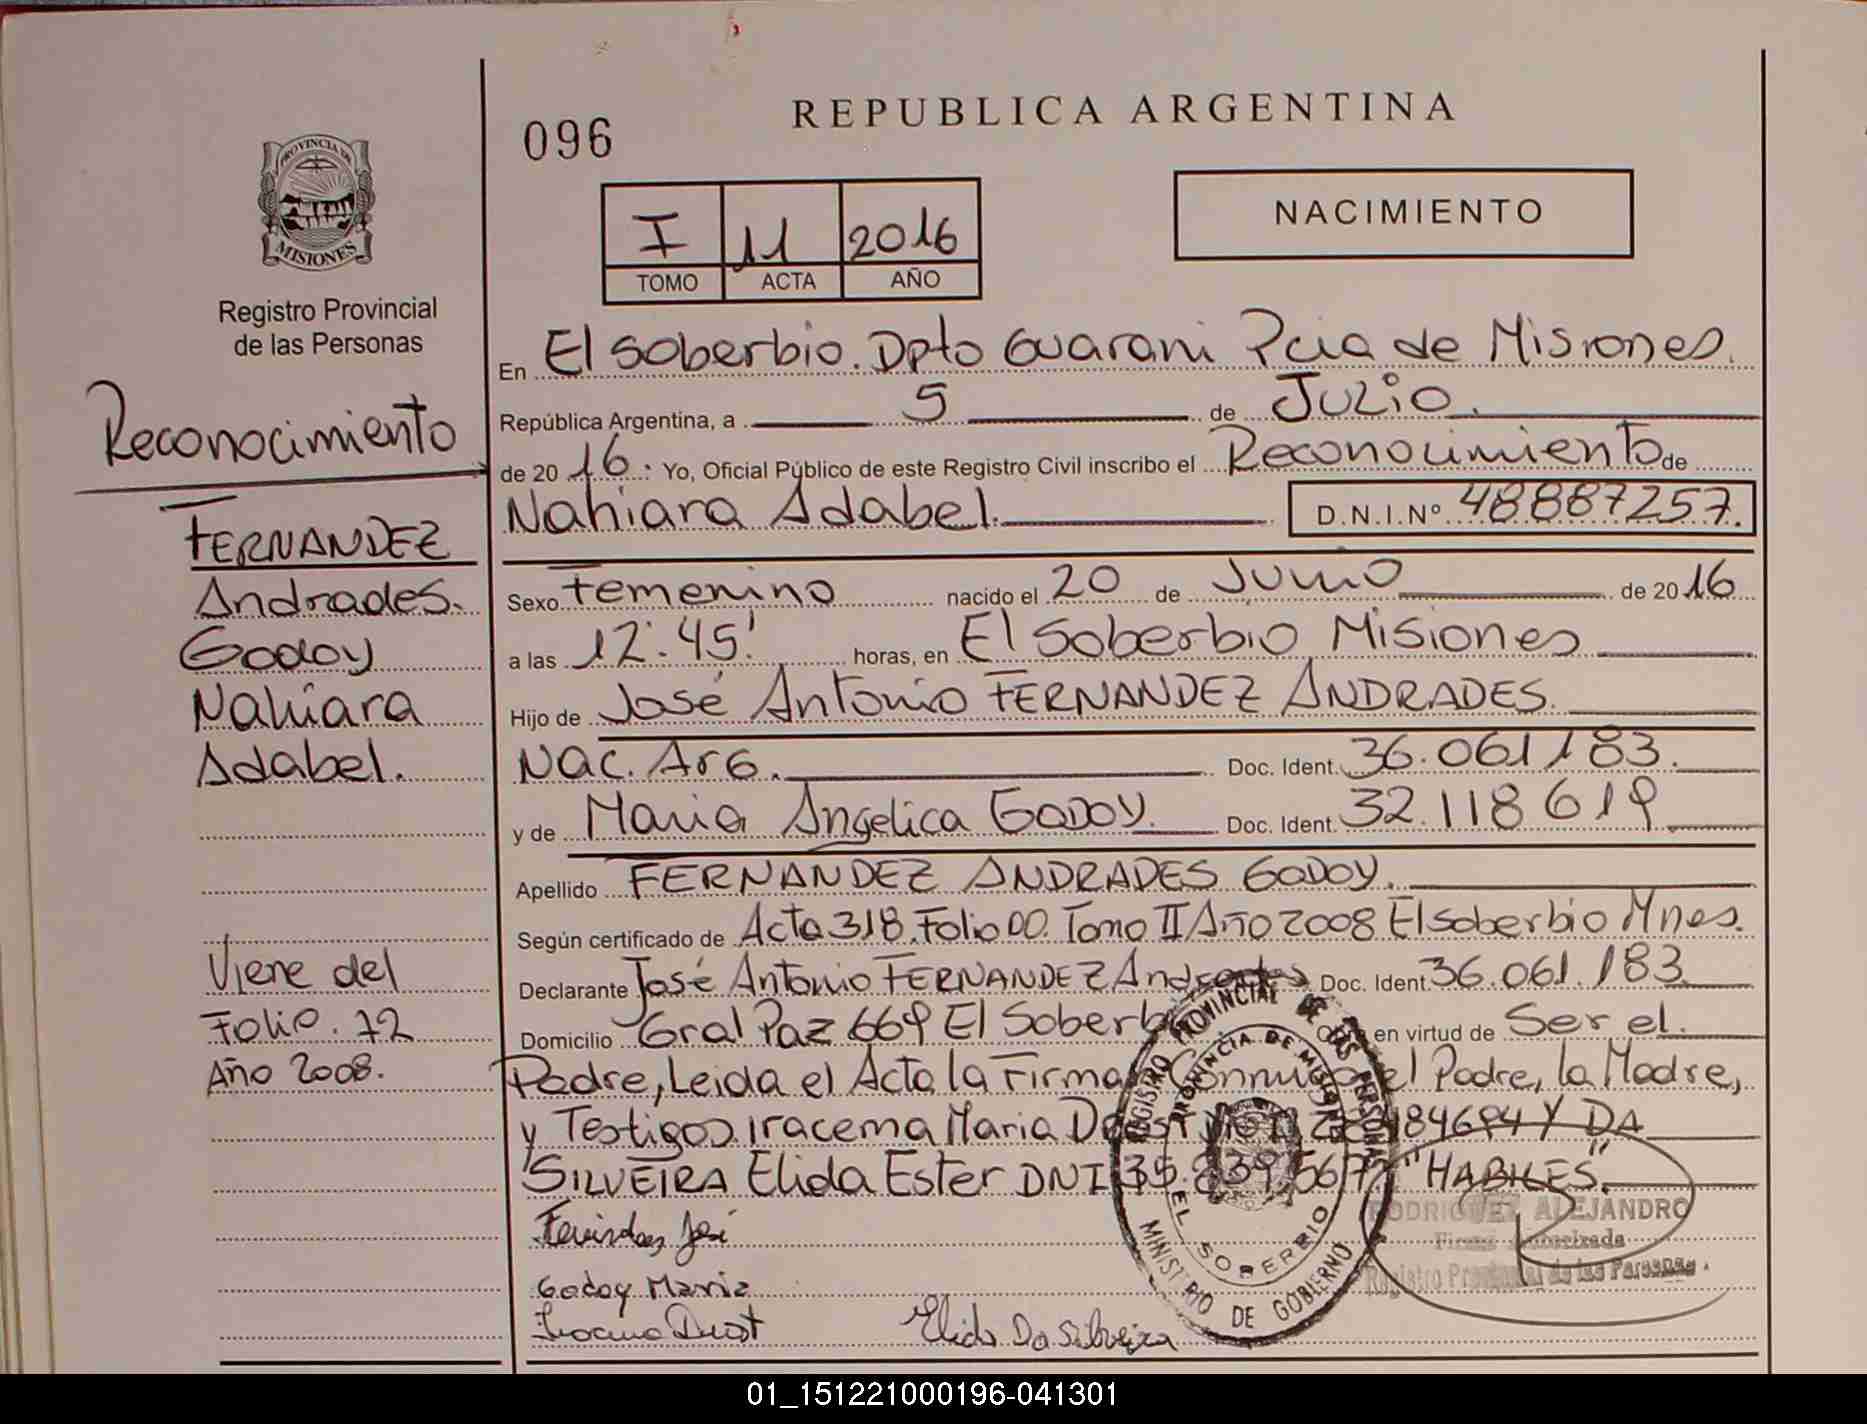 PROVINCIA DE
MISIONES
Registro Provincial
de las Personas
Reconocimiento
FERNANDEZ
Andrades.
Godoy
Nahiara
Adabel.
Viene del
Folio. 72
Año 2008.
096
REPUBLICA ARGENTINA
I 11 2016
TOMO ACTA AÑO
NACIMIENTO
En El Soberbio. Dpto Guarani Pcia de Misiones.
República Argentina, a 5 de Julio.
de 20 16. Yo, Oficial Público de este Registro Civil inscribo el Reconocimiento de
Nahiara Adabel. D.N.I.Nº 48887257.
Sexo Femenino nacido el 20 de Junio de 20 16
a las 12:45' horas, en El Soberbio Misiones
Hijo de José Antonio FERNANDEZ ANDRADES.
Nac. Arg. Doc. Ident. 36.061.183.
y de Maria Angelica GODOY. Doc. Ident. 32.118619
Apellido FERNANDEZ ANDRADES GODOY.
Según certificado de Acta 318. Folio 00. Tomo II Año 2008 El Soberbio Mnes.
Declarante José Antonio FERNANDEZ Andrades Doc. Ident 36.061.183.
Domicilio Gral Paz 669 El Soberb en virtud de Ser el.
Padre, Leida el Acta la Firma el Padre, la Madre,
y Testigos Iracema Maria Y DA
SILVEIRA Elida Ester DNI 35.839.567 "HABILES".
REGISTRO PROVINCIAL DE LAS PERSONAS
PROVINCIA DE MISIONES
EL SOBERBIO
MINISTERIO DE GOBIERNO
RODRIGUEZ ALEJANDRO
Firma Autorizada
Registro Provincial de las Personas.
José
Godoy Maria
Elida Da Silveira
01_151221000196-041301